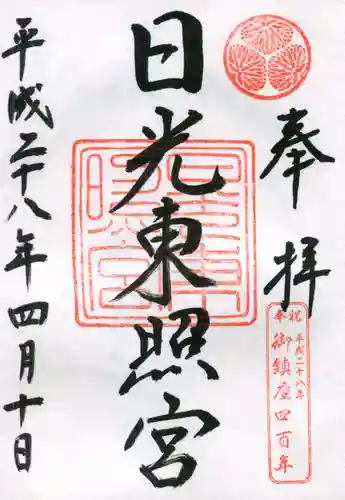 奉拝
奉祝
平成二十八年
御鎮座四百年
日光東照宮
平成二十八年四月十日